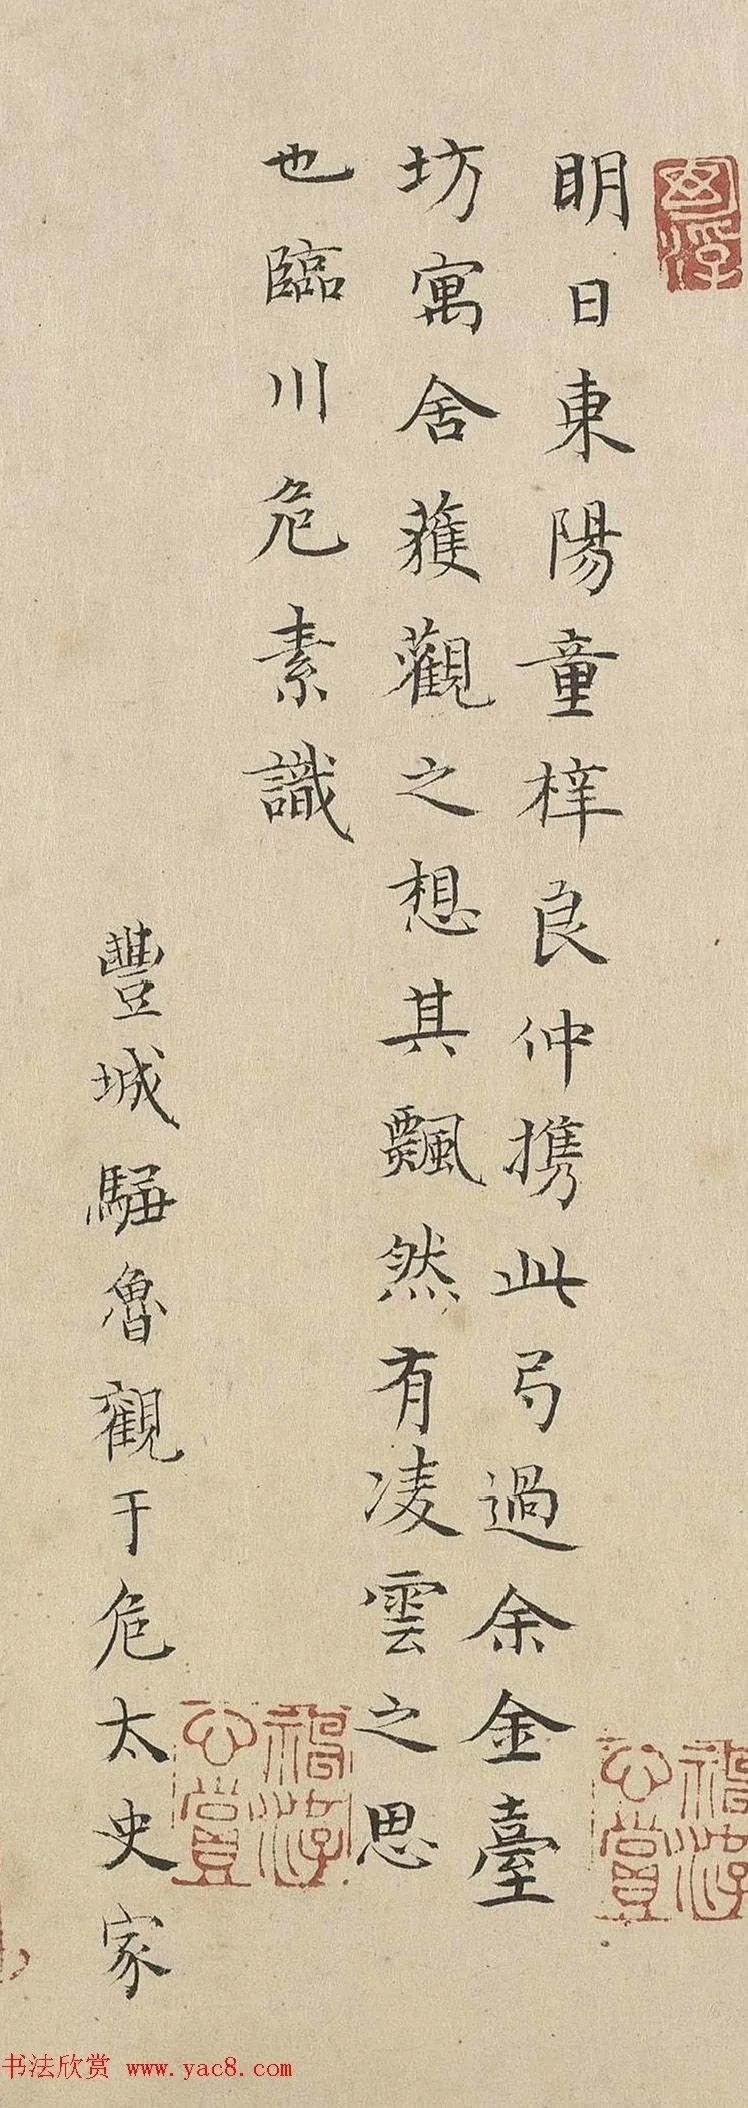 眀日東陽童梓良仲携此弓過余金臺
坊寓舍獲觀之想其飄然有凌雲之思
也臨川危素識
豐城魯觀于危太史家
神游心賞
神游心賞
书法欣赏 www.yac8.com